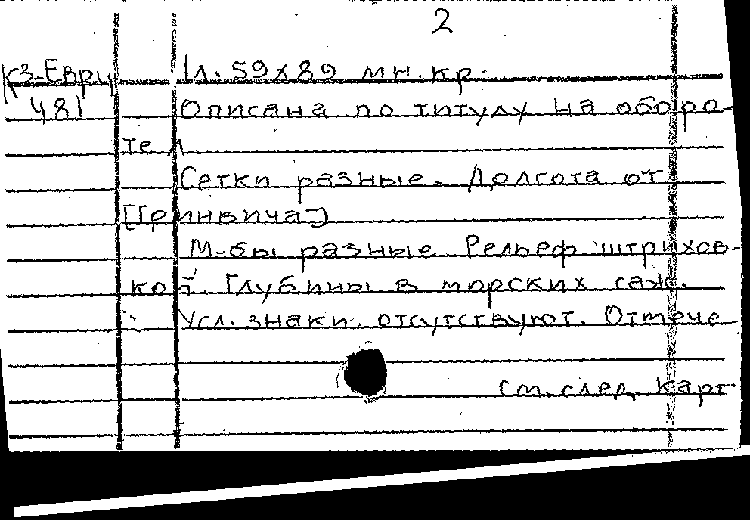 2
К3-Евр 1л. 59х89 мн.кр.
481 Описана по титулу на оборо-
те л
Сетки разные. Долгота от
[Гринвича]
М-бы разные Рельеф штрихов-
кой. Глубины в морских саж.
Усл. знаки отсутствуют. Отмече
см. след. карт